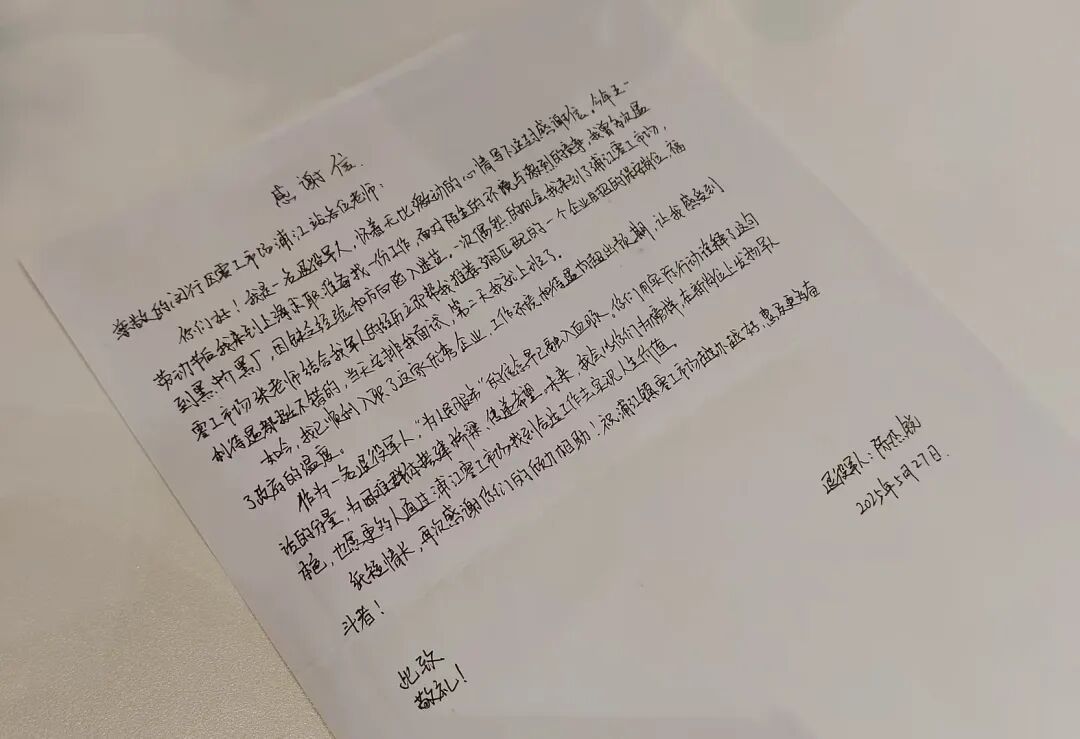 感谢信
尊敬的闵行区零工市场浦江站各位老师：
你们好！我是一名退役军人，怀着无比激动的心情写下这封感谢信。今年五一
劳动节后我来到上海求职，准备找一份工作，面对陌生的环境与激烈的竞争，我曾多次遇
到黑中介黑厂，因缺乏经验和方向陷入迷茫。一次偶然的机会我来到了浦江零工市场，
零工市场张老师结合我军人的经历立即帮我推荐了相匹配的一个企业的保安岗位，福
利待遇都挺不错的，当天安排我面试，第二天我就上班了。
如今，我已顺利入职了这家优秀企业，工作环境和待遇均超出预期，让我感受到
了政府的温度。
作为一名退役军人，“为人民服务”的信念早已融入血脉。你们用实际行动诠释了这句
话的分量，为困难群体搭建桥梁，传递希望。未来，我会以你们为榜样，在新岗位上发扬军人
本色，也愿更多人通过浦江零工市场找到合适工作去实现人生价值。
纸短情长，再次感谢你们的倾力相助！祝浦江镇零工市场越办越好，惠及更多奋
斗者！
此致
敬礼！
退役军人：陈
2025年5月27日